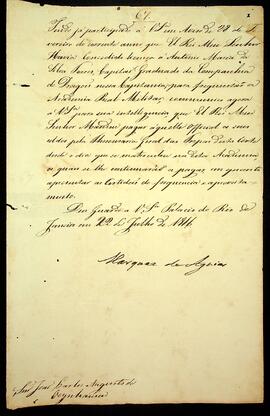 Tendo já participado a V.Sª em Aviso de 28 de Fe
vereiro do corrente anno que El Rei Meu Senhor
Havia Concedido licença a Antonio Maria da
Silva Torres, Capitão Graduado da Companhia
de Dragões nessa Capitania, para frequentar a
Academia Real Militar; communico agora
a V.Sª para sua intelligencia que El Rei Meu
Senhor Manda pagar áquelle Official os seus
soldos pela Thesouraria Geral das Tropas desta Corte
desde o dia que se matriculou em dita Academia
a qual se lhe continuará a pagar em quanto
apresentar as Certidões de frequencia e aproveita
mento.
Deos Guarde a V.Sª Palacio do Rio de
Janeiro em 22 de Julho de 1816
Marquez de Aguiar
Snr João Carlos Augusto de
Oeynhausen